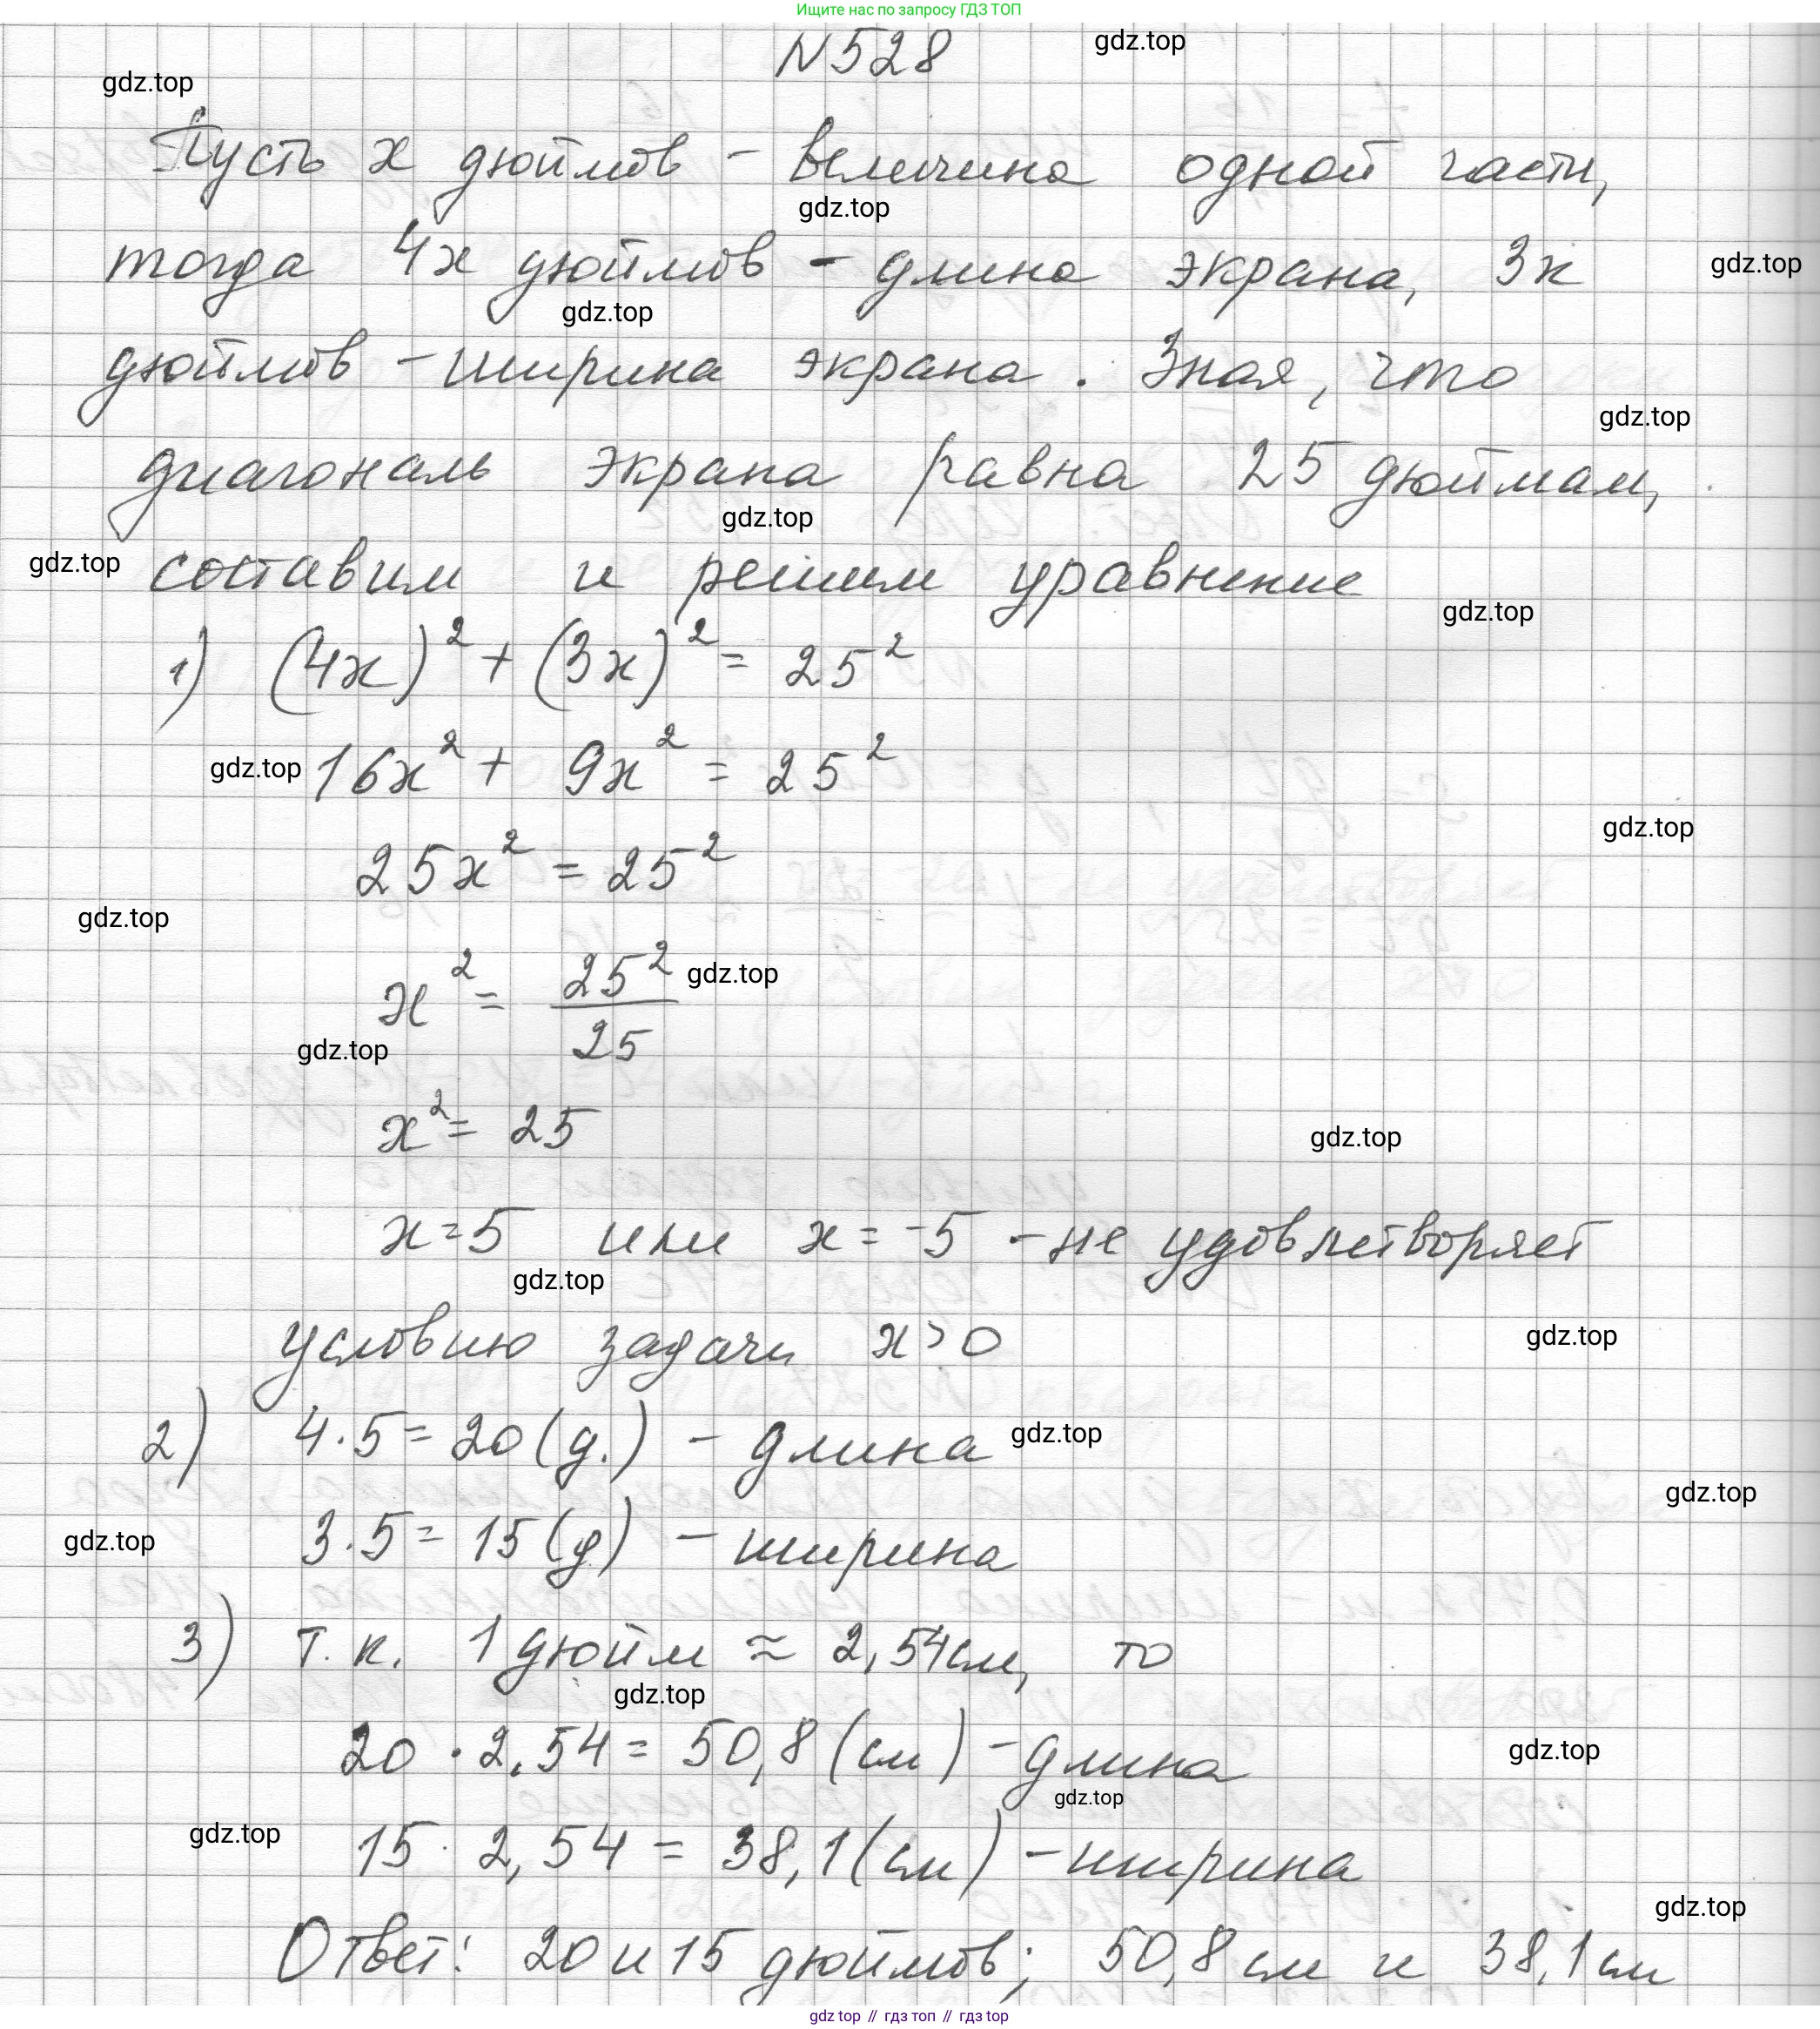 Ищите нас по запросу ГДЗ ТОП
N528
gdz.top
gdz.top
Пусть x дюймов - величина одной части,
gdz.top
тогда 4x дюймов - длина экрана, 3x
gdz.top
gdz.top
дюймов - ширина экрана. Зная, что
gdz.top
диагональ экрана равна 25 дюймам,
gdz.top
gdz.top
составим и решим уравнение
gdz.top
1) (4x)² + (3x)² = 25²
gdz.top
16x² + 9x² = 25²
gdz.top
25x² = 25²
gdz.top
x² = 25²/25
gdz.top
gdz.top
x² = 25
gdz.top
x = 5 или x = -5 - не удовлетворяет
gdz.top
условию задачи x > 0
gdz.top
2) 4·5 = 20 (д.) - длина
gdz.top
gdz.top
3·5 = 15 (д) - ширина
gdz.top
3) т.к. 1 дюйм ≈ 2,54 см, то
gdz.top
20 · 2,54 = 50,8 (см) - длина
gdz.top
gdz.top
gdz.top
15 · 2,54 = 38,1 (см) - ширина
gdz.top
Ответ: 20 и 15 дюймов; 50,8 см и 38,1 см
gdz top // гдз топ // гдз top